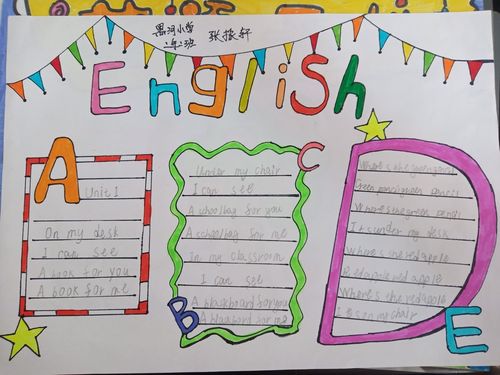 黑河小学
张掖轩
English
A
Unit 1
On my desk
I can see
A book for you
A book for me
B
C
Under my chair
I can see
A schoolbag for you
A schoolbag for me
In my classroom
I can see
A blackboard for you
A blackboard for me
D
E
Where's the green pencil
Green pencil green pencil
Where's the green pencil
It's under my desk
Where's the red apple
Red apple red apple
Where's the red apple
It is on my chair